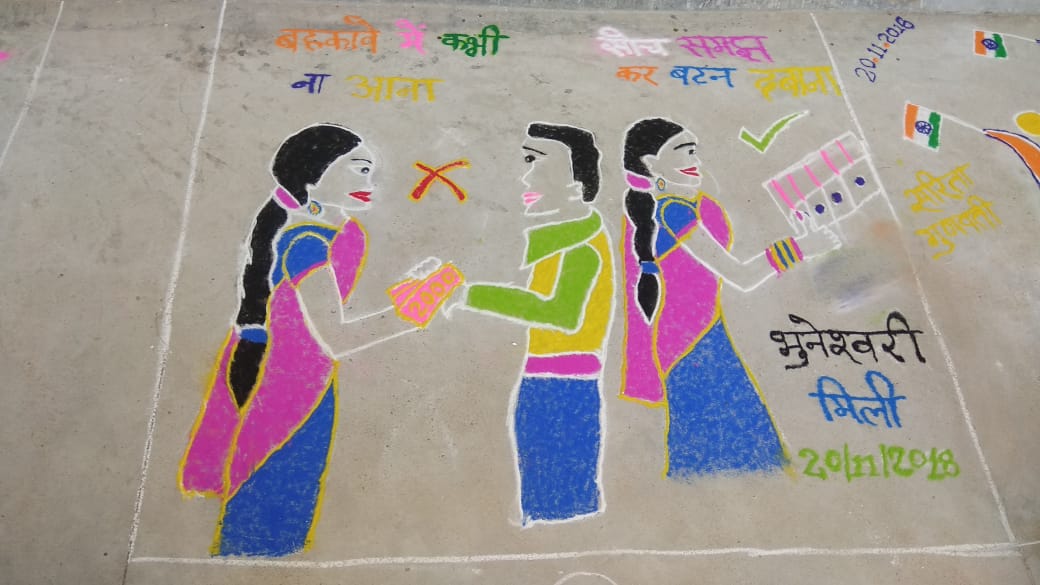 बहकावे में कभी
ना आना
सोच समझ
कर बटन दबाना
20.11.2018
2000
सरिता
भुनेश्वरी
मिली
20/11/2018